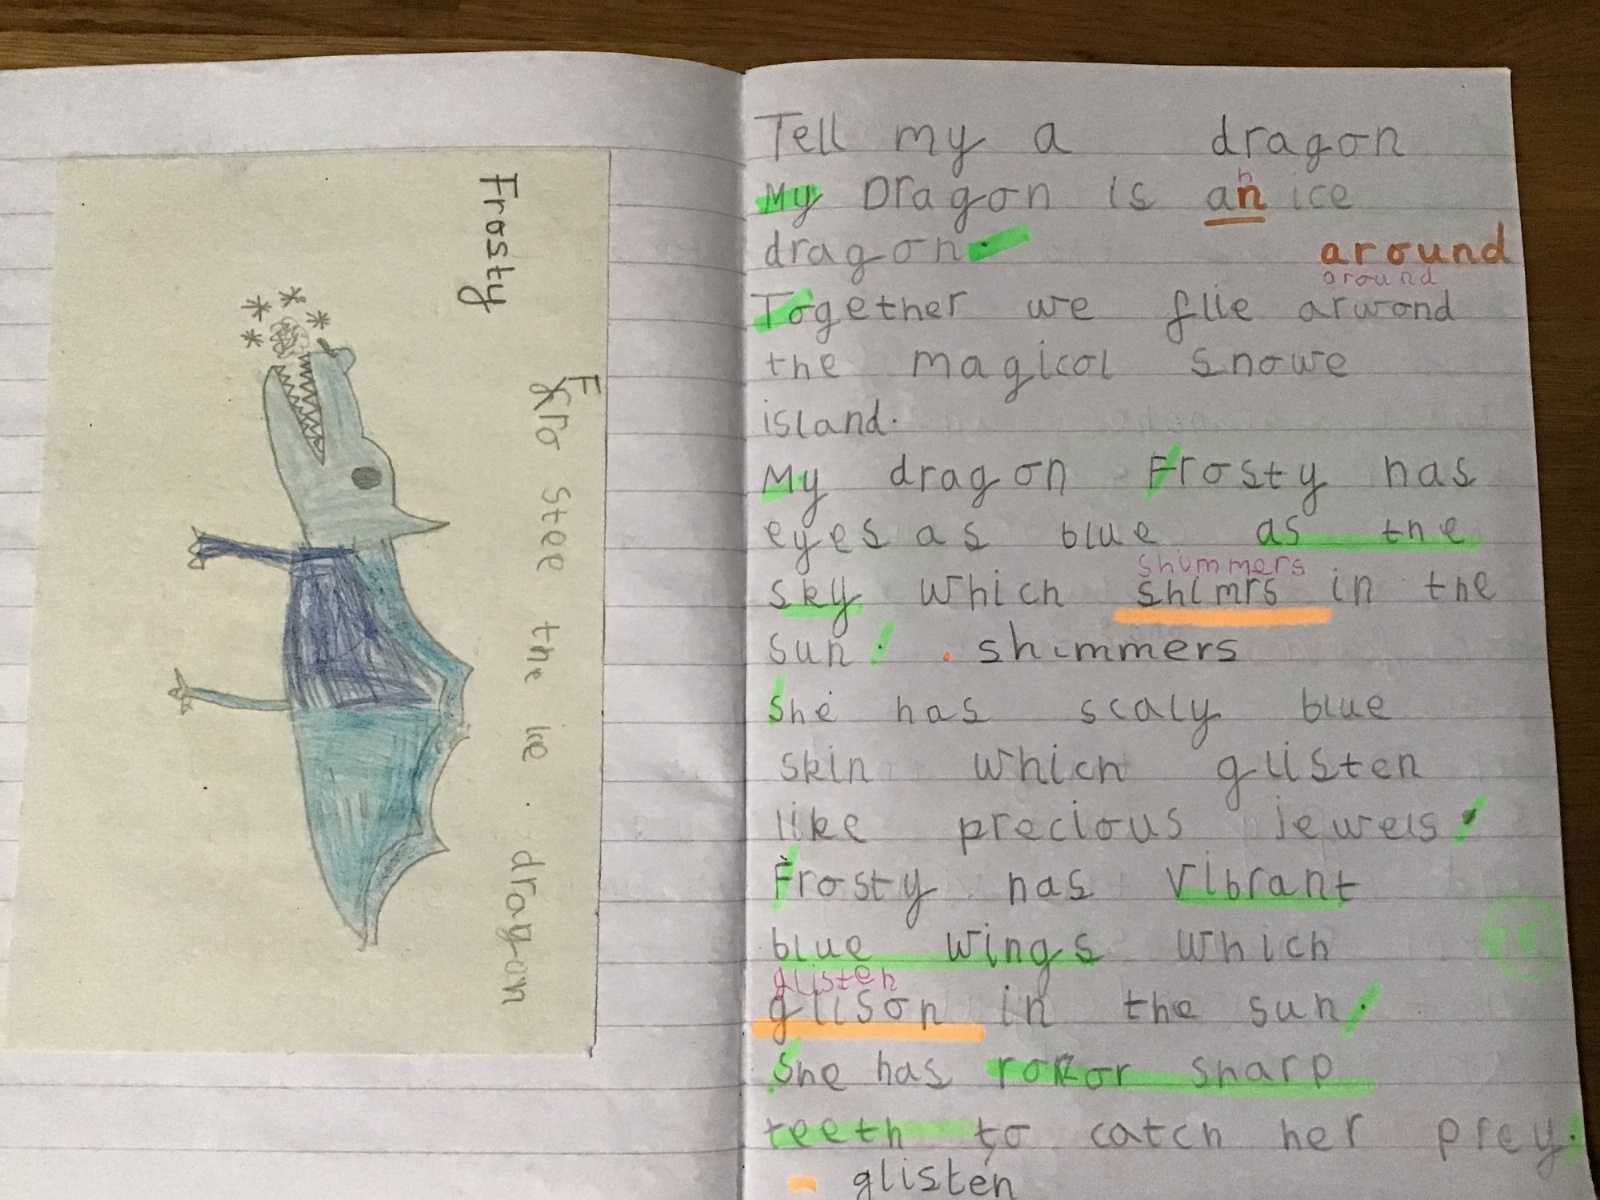 Frosty
Fro stee the ice dragon
Tell my a dragon
My Dragon is an ice
n
dragon.
around
around
Together we flie arwond
the magicol snowe
island.
My dragon Frosty has
eyes as blue as the
shummers
sky which shimrs in the
sun. . shimmers
She has scaly blue
skin which glisten
like precious jewels.
Frosty has vibrant
blue wings which
glisten
glison in the sun.
She has sharp
teeth to catch her prey.
glisten